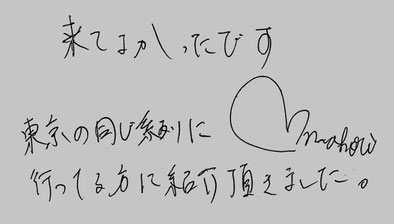 来てよかったです
東京の同じ系列に
行ってる方に紹介頂きました。